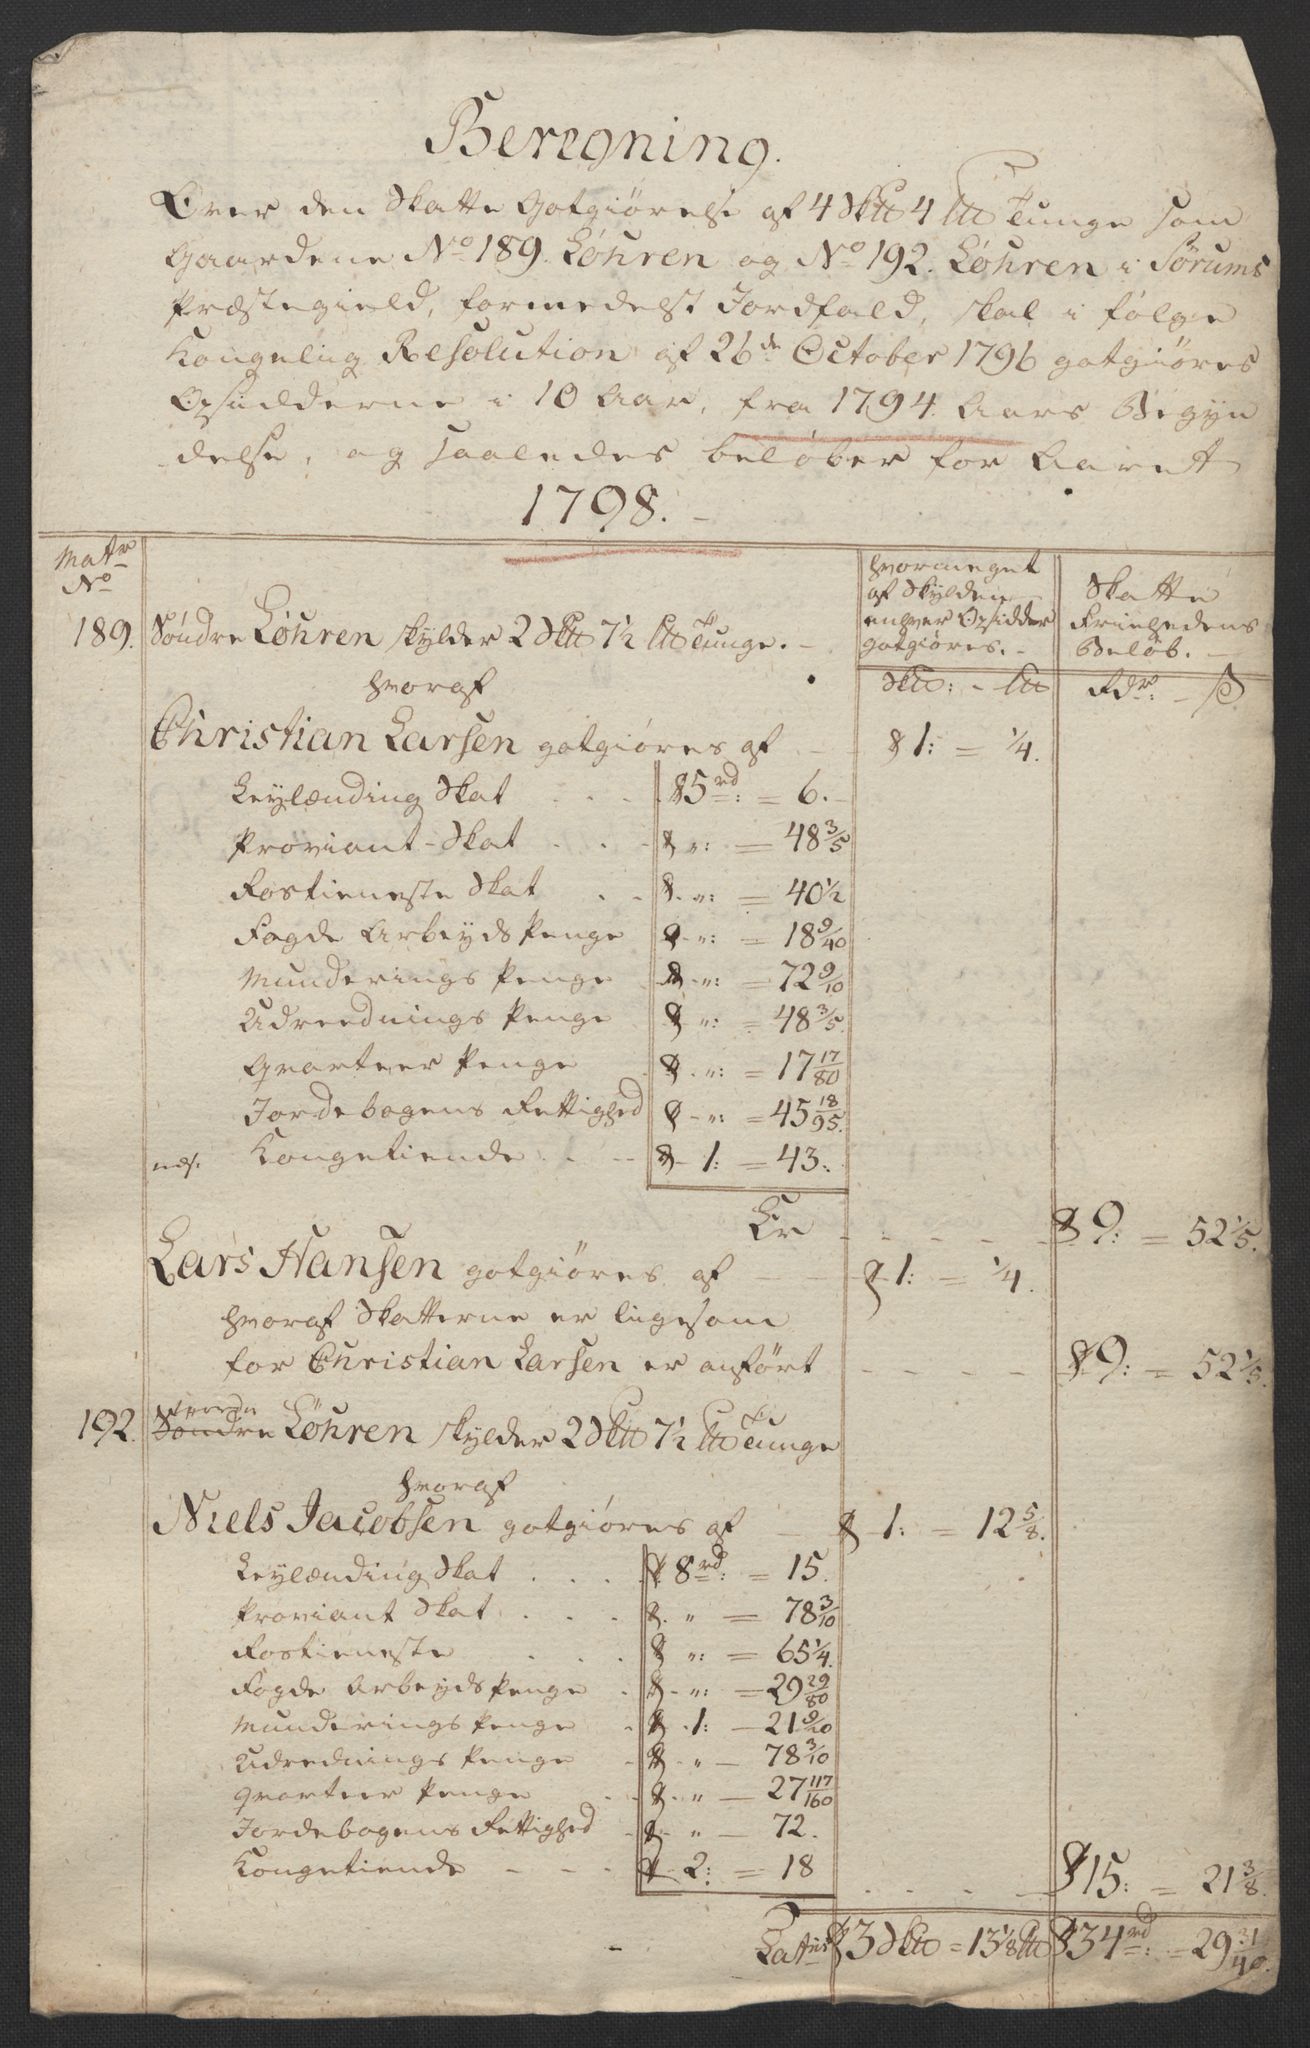 Beregning.
Over den Skatte Godtgiørelse af 4 Sk℔ 4 L℔ Tunge som
Gaardene No 189. Löhren og No 192. Löhren i Sørums
Præstegield, formedelst Jordfald, skal i følge
Kongelig Resolution af 26de October 1796 godtgiøres
Opsidderne i 10 Aar, fra 1794 Aars Begyn
delse, og saaledes beløber for Aaret
1798.
Matr No
hvormeget af Skylden enhver Opsidder godtgiøres.
Skatte Friehedens Beløb.
189. Söndre Löhren skylder 2 Sk℔ 7½ L℔ Tunge.
hvoraf
Sk℔: - L℔ Rdr: - ß
Christian Larsen godtgiøres af - 1: = ¼.
Leylænding Skat . . . 5rd: = 6.
Proviant-Skat . . - ": = 48 3/5
Rostieneste Skat . . - ": = 40 ½
Fogde Arbeyds Penge - ": = 18 9/40
Munderings Penge - ": = 72 9/10
Udreednings Penge - ": = 48 3/5.
Qvarteer Penge - ": = 17 17/80
Jordebogens Rettighed - ": = 45 18/95.
Kongetiende . . - 1: = 43.
Er - - - - - 9: = 52 1/5.
Lars Hansen godtgiøres af - - 1: = ¼.
hvoraf Skatterne er ligesom
for Christian Larsen er anført - - - - 9: = 52 1/5.
192. Söndre Nordre Löhren skylder 2 Sk℔ 7½ L℔ Tunge
hvoraf
Niels Jacobsen godtgiøres af - 1: = 12 5/8.
Leylænding Skat . . . 8rd: = 15.
Proviant Skat . . . " = 78 3/10
Rostieneste . . . ": = 65 ¼.
Fogde Arbeyds Penge . - ": = 29 29/80
Munderings Penge . 1: - 21 9/20
Udrednings Penge - " - 78 3/10
Qvarteer Penge . . " - 27 117/160
Jordebogens Rettighed - " - 72.
Kongetiende - - - 2: = 18
- - - - 15: = 21 3/8.
Latus 3 Sk℔ = 13 1/8 L℔ 34rd: = 29 31/40.